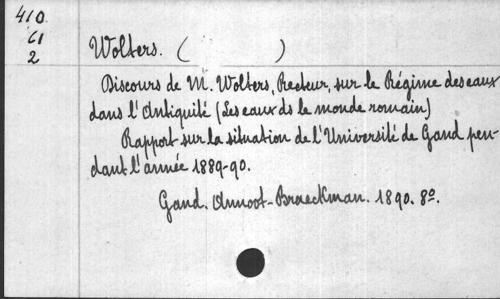 410
61
2
Wolters. ( )
Discours de M. Wolters, Recteur, sur le Régime des eaux
dans l'Antiquité (Les eaux ds le monde romain)
Rapport sur la situation de l'Université de Gand pen-
dant l'année 1889-90.
Gand. Annoot-Braeckman. 1890. 8º.